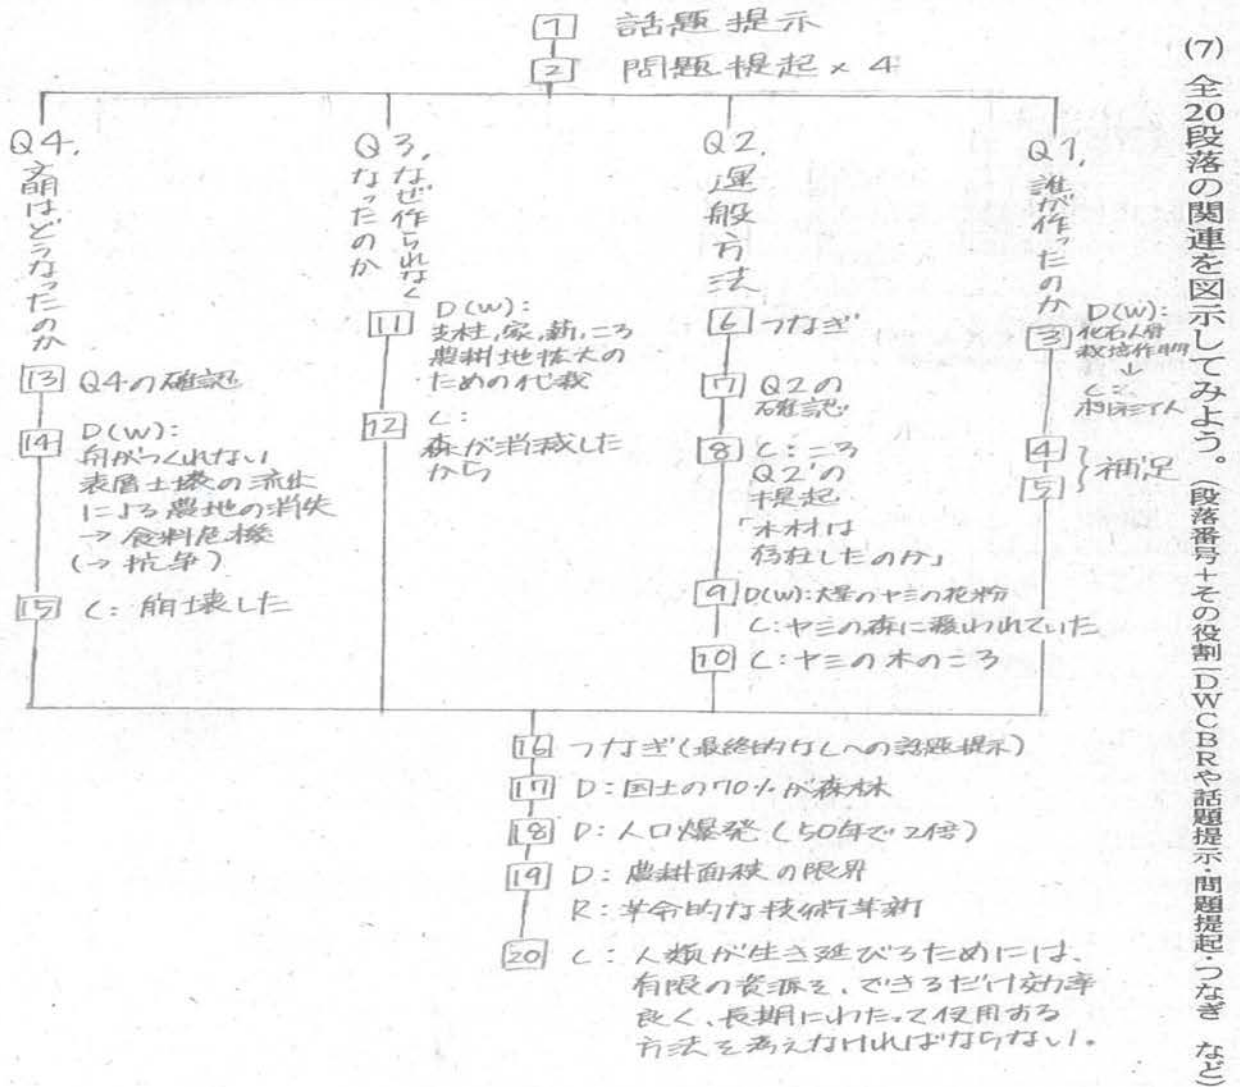 (7) 全20段落の関連を図示してみよう。(段落番号+その役割(DWCBRや話題提示・問題提起・つなぎ など
1 話題提示
2 問題提起×4
Q1. 誰が作ったのか
3 D(W):
化石人骨
栽培作物
↓
C:
ポリネシア人
4
5 補足
Q2. 運般方法
6 つなぎ
7 Q2の
確認
8 C:ころ
Q2'の
提起
「木材は
存在したのか」
9 D(W):大量のヤシの花粉
C:ヤシの森に覆われていた
10 C:ヤシの木のころ
Q3. なぜ作られなく
なったのか
11 D(W):
支柱,家,薪,ころ
農耕地拡大の
ための伐栽
12 C:
森が消滅した
から
Q4. 文明はどうなったのか
13 Q4の確認
14 D(W):
舟がつくれない
表層土壌の流出
による農地の消失
→食料危機
(→抗争)
15 C:崩壊した
16 つなぎ(最終的なCへの話題提示)
17 D:国土の70%が森林
18 D:人口爆発(50年で2倍)
19 D:農耕面積の限界
R:革命的な技術革新
20 C:人類が生き延びるためには、
有限の資源を、できるだけ効率
良く、長期にわたって使用する
方法を考えなければならない。